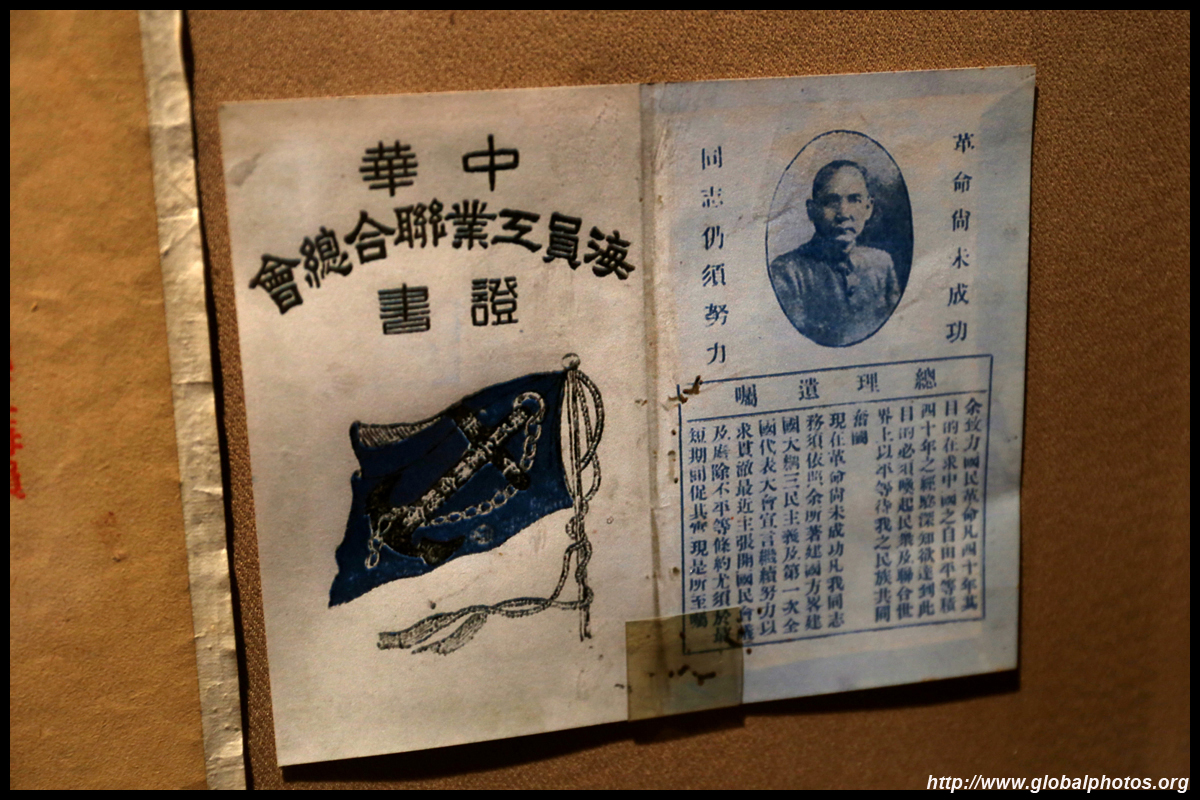 中華
海員工業聯合總會
證書
革命尚未成功
同志仍須努力
總理遺囑
余致力國民革命凡四十年其
目的在求中國之自由平等積
四十年之經驗深知欲達到此
目的必須喚起民衆及聯合世
界上以平等待我之民族共同
奮鬭
現在革命尚未成功凡我同志
務須依照余所著建國方畧建
國大綱三民主義及第一次全
國代表大會宣言繼續努力以
求貫澈最近主張開國民會議
及廢除不平等條約尤須於最
短期間促其實現是所至囑
http://www.globalphotos.org